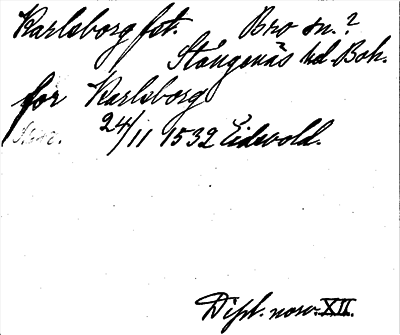 Karlsborg fst. Bro sn.?
Stångenäs hd. Boh.
for Karlsborg
24/11 1532 Eidsvold.
Dipl. norv. XII.